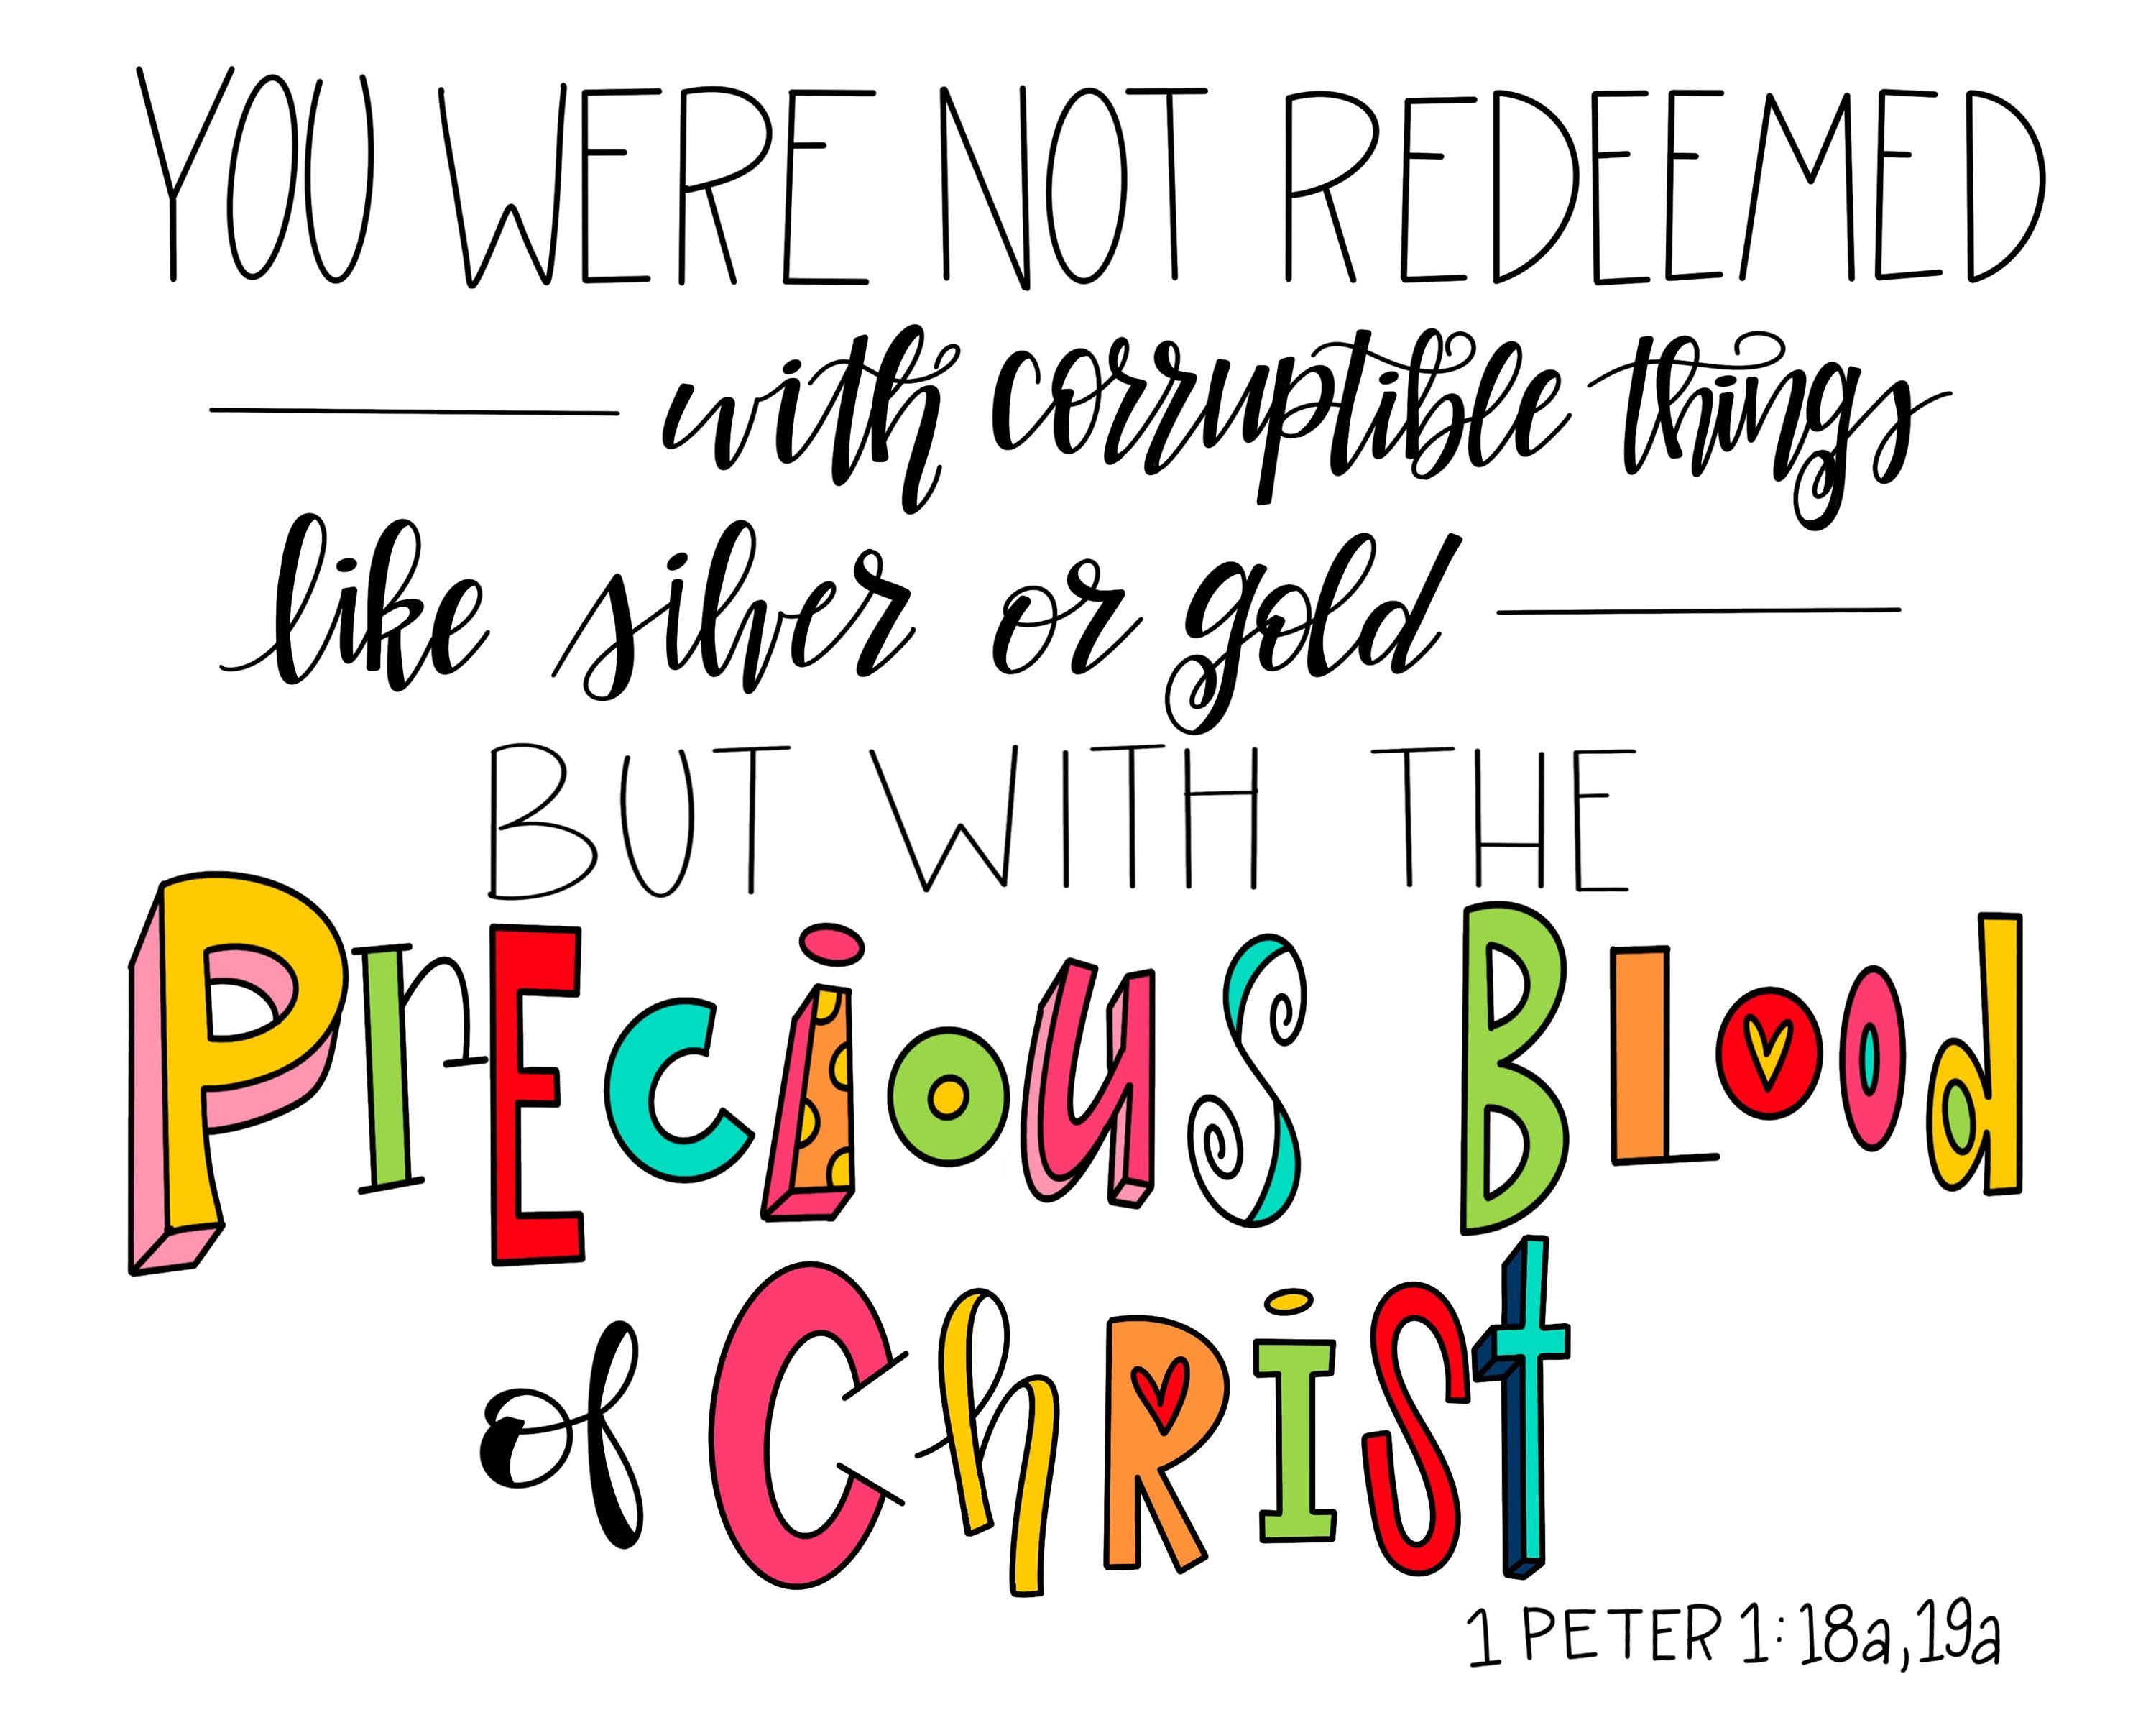 YOU WERE NOT REDEEMED
with corruptible things
like silver or gold
BUT WITH THE
PrEcious BLood
of ChRIST
1 PETER 1:18a,19a